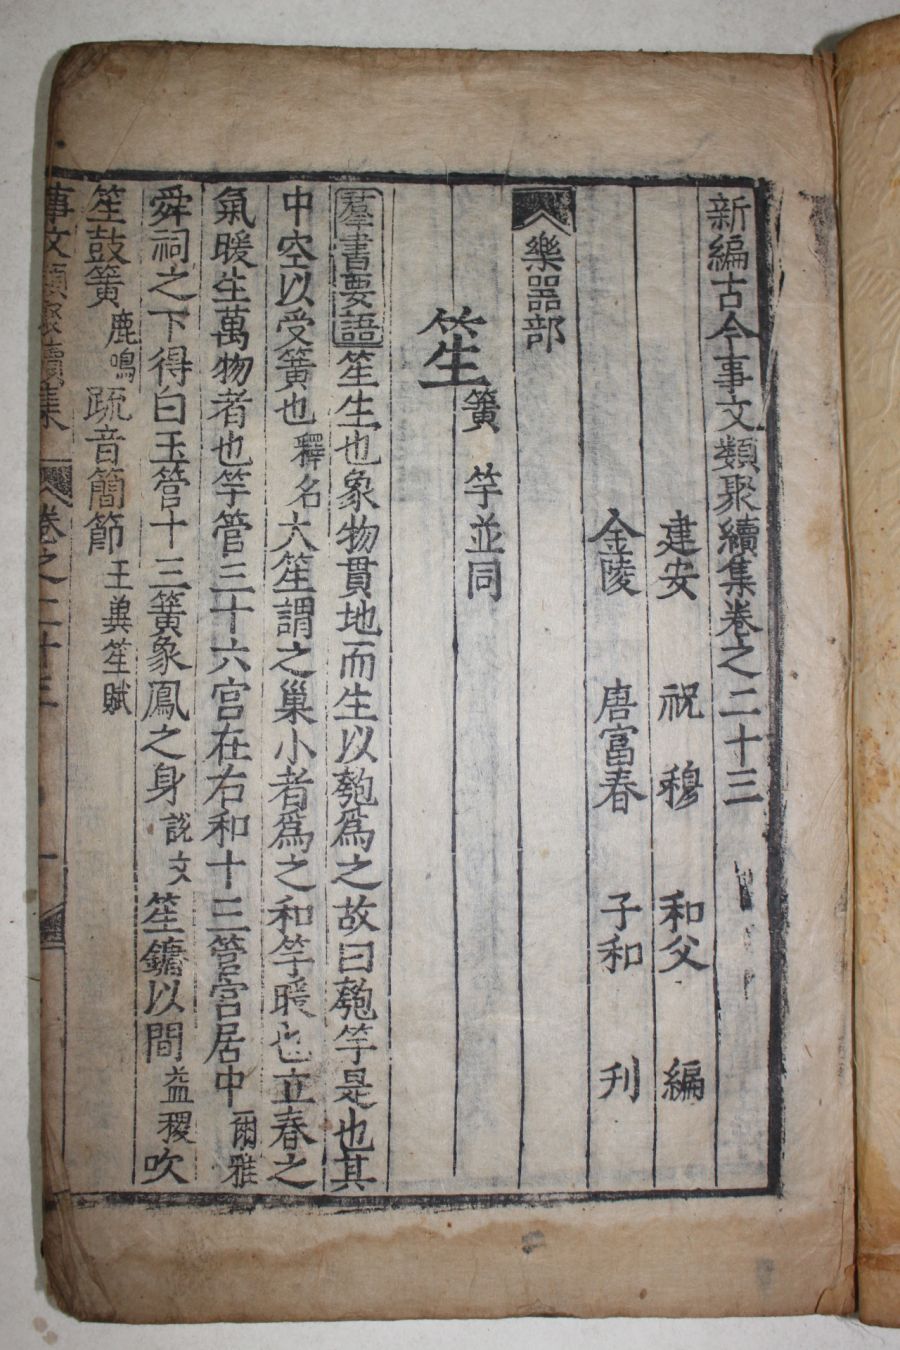 新編古今事文類聚續集卷之二十三
建安 祝穆 和父 編
金陵 唐富春 子和 刋
樂器部
笙 簧 竽並同
羣書要語笙生也象物貫地而生以匏爲之故曰匏竽是也其
中空以受簧也釋名大笙謂之巢小者爲之和竽暖也立春之
氣暖生萬物者也竽管三十六宮在右和十三管宮居中爾雅
舜祠之下得白玉管十三簧象鳳之身說文笙鏞以間益稷吹
笙鼓簧鹿鳴䟽音簡節王䔬笙賦
事文類聚續集 卷之二十三 一